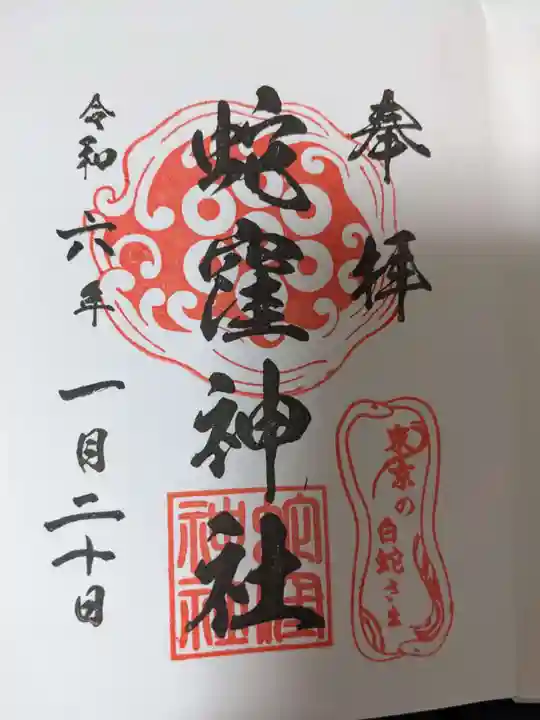 奉拝
蛇窪神社
令和六年一月二十日
東京の
白蛇さま
蛇窪
神社